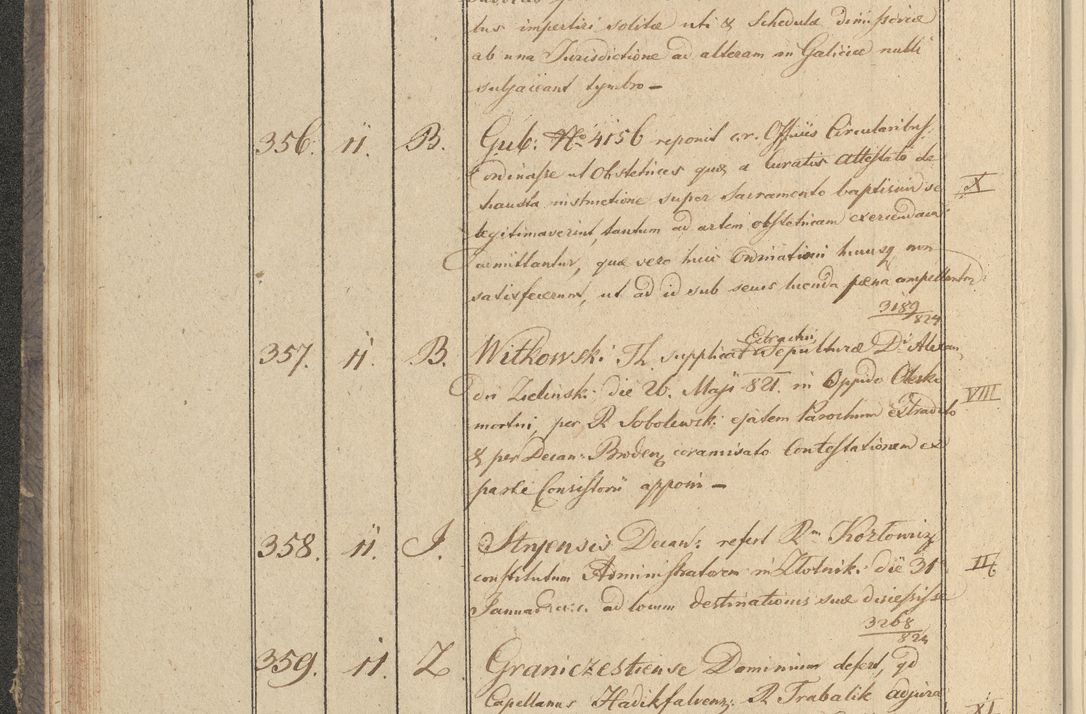 tus impertiri solitæ uti & Schedulæ dimissoriæ
ab una Jurisdictione ad alteram in Galiciæ nulli
subjaceant tymbro —
356. 11. B. Gub: No 4156 reponit cr. Officiis Circularibus
ordinasse ut Obstetrices quæ a Curatis Attestato de
hausta instructione super Sacramento baptismi se X
legitimaverint, tantum ad artem obstetricam exercendam
admittantur, quæ vero huic Ordinationi hucusq non
satisfecerunt, ut ad id sub secus luenda pæna ampellantur.
3189/824
357. 11. B. Witkowski Th. supplicat Extractui Sepulturæ Di Alexan
dri Zielinski die 26. Maji 821. in Oppido Olesko VIII
mortui, per R Sobolewski ejatem Parochum extradito
& per Decan: Brodens coramisato Contestationem ex
parte Consistorii apponi —
358. 11. J. Stryensis Decan: refert Rm Kozłowicz
constitutum Administratorem in Złotnik: die 31 II
Januar a. c. ad locum destinationis suæ discessisse
3268/824
359. 11. Z Graniczestiense Dominium defert, qd
Capellanus Hadikfalvens: R Trabalik adjuva XI